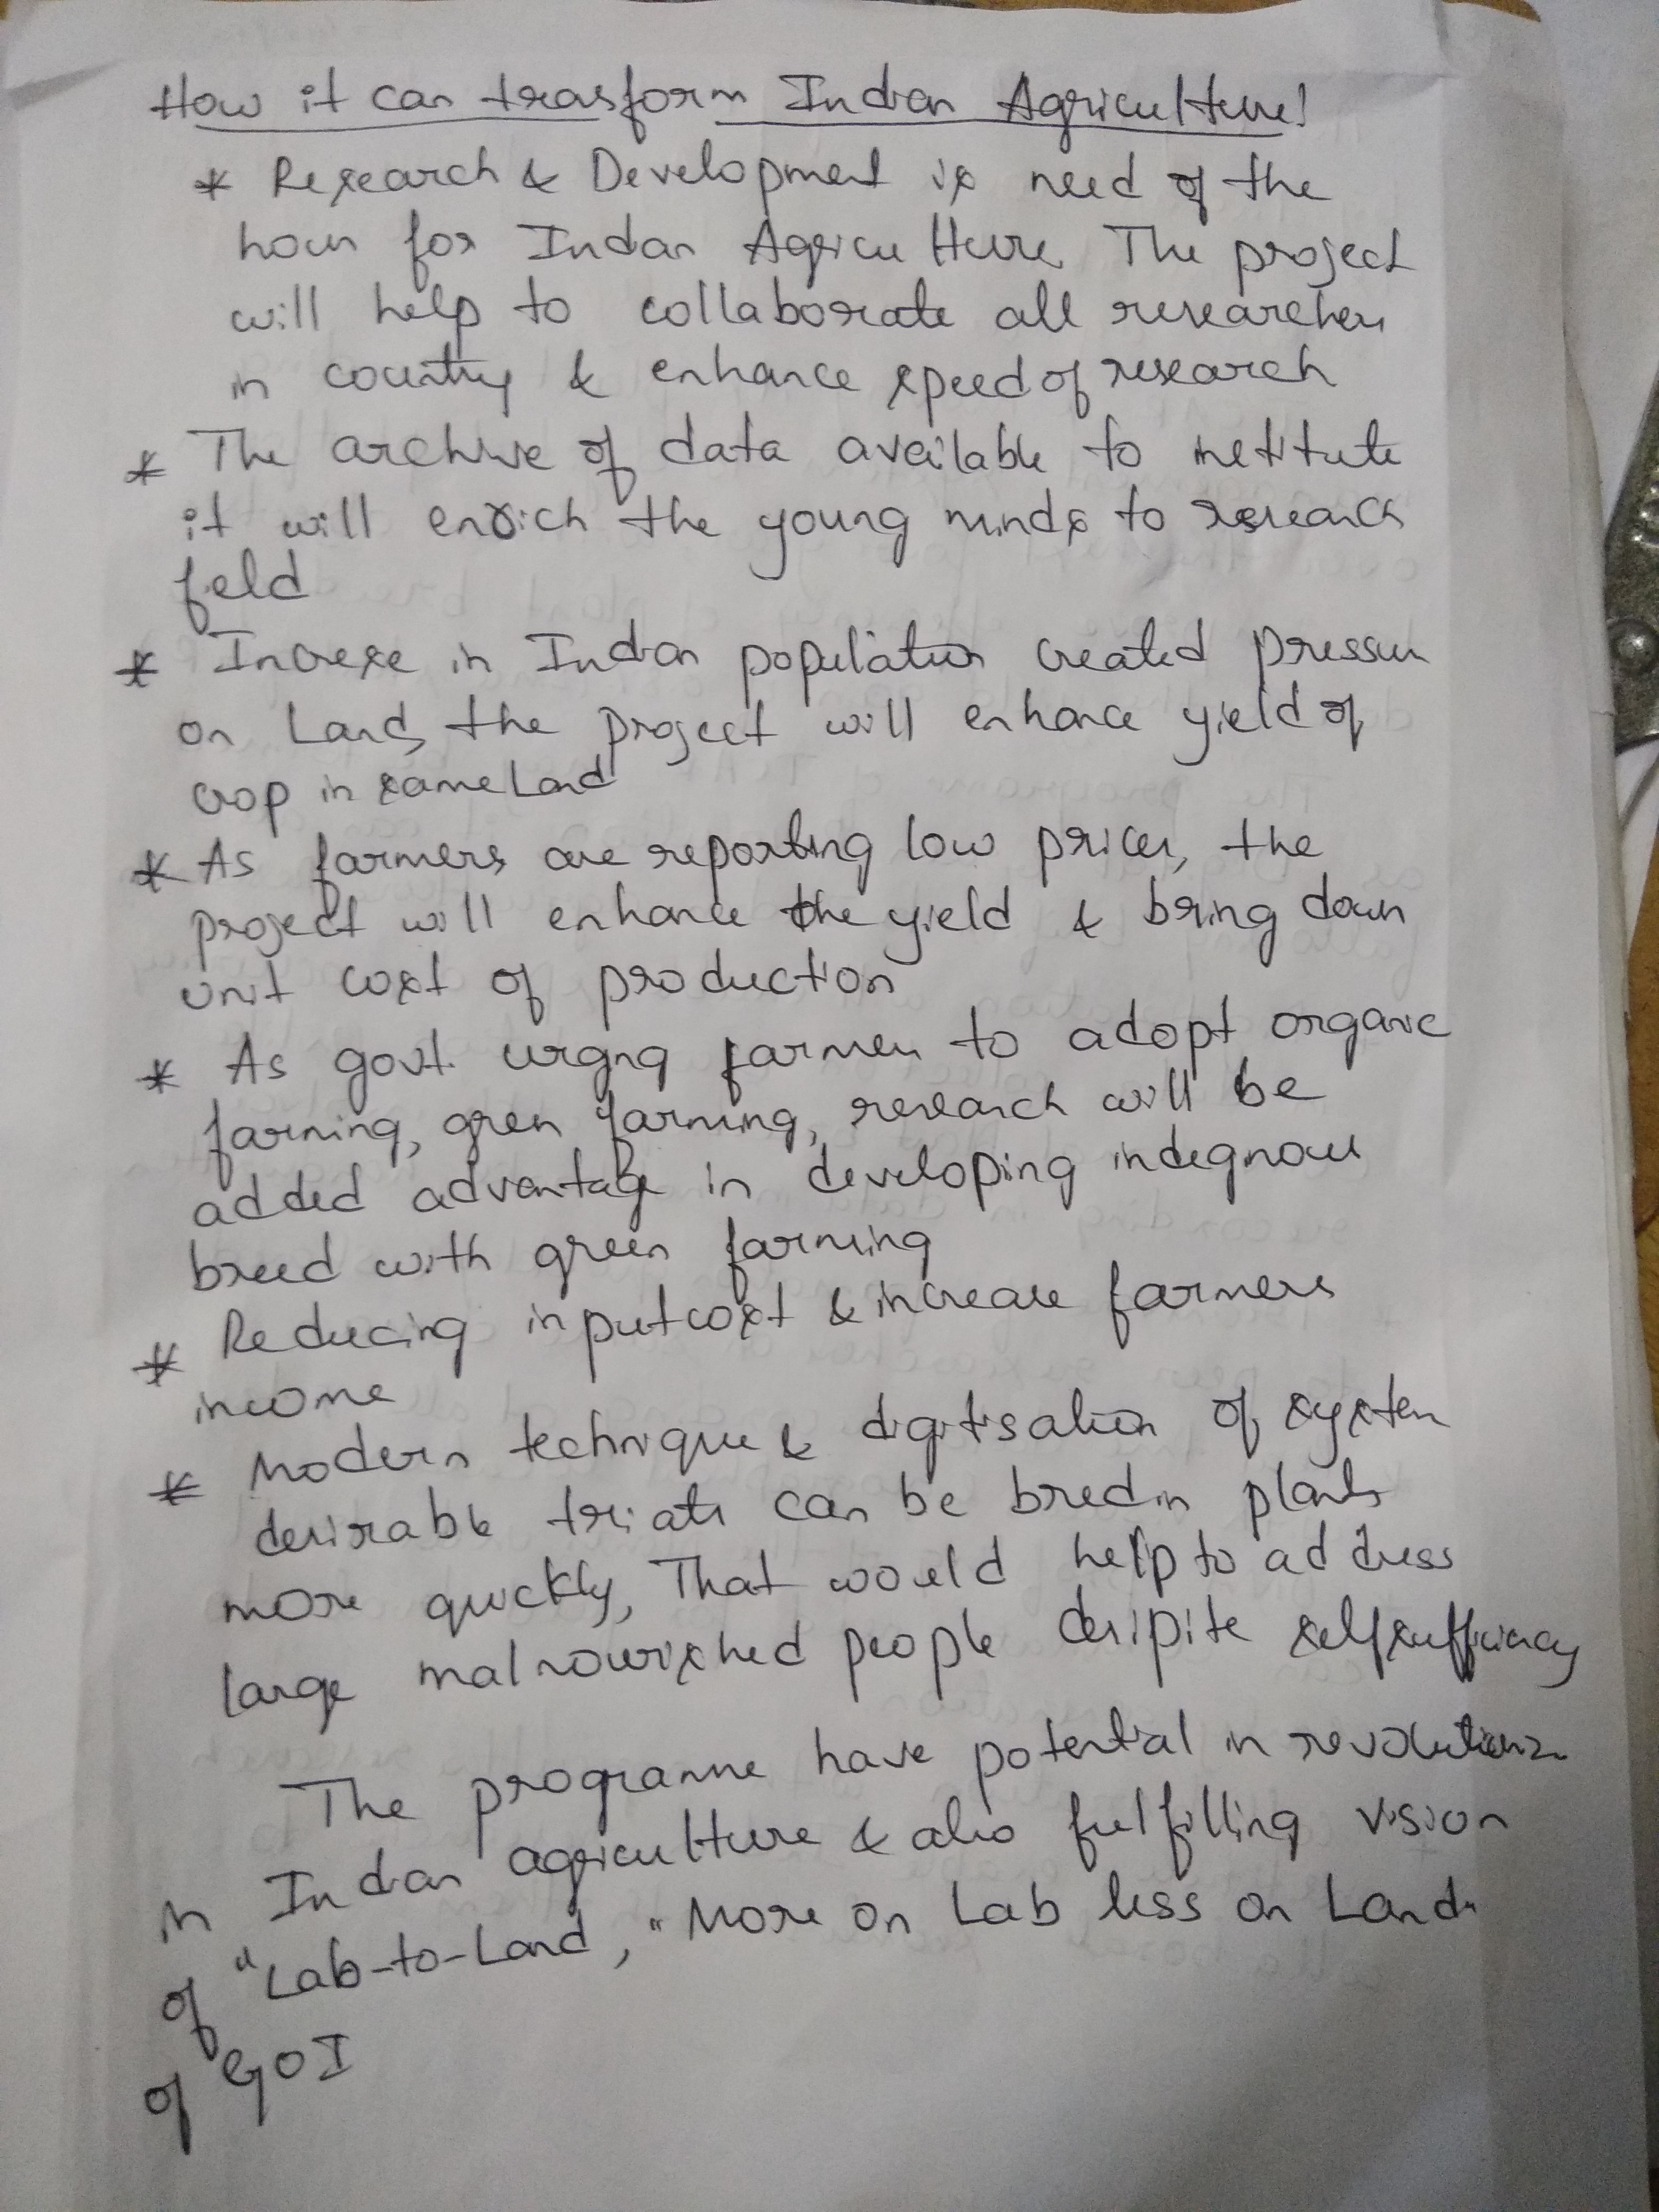 How it can trasform Indian Agriculture!
* Research & Development is need of the
hour for Indan Agriculture. The project
will help to collaborate all researchers
in country & enhance speed of research
* The archive of data available to institute
it will enrich the young minds to research
field
* Increse in Indian population created pressure
on Land, the project will enhance yield of
crop in same Land
* As farmers are reporting low prices, the
project will enhance the yield & bring down
unit cost of production
* As govt. urging farmers to adopt organic
farming, green farming, research will be
added advantage in developing indegnous
breed with green farming
* Reducing input cost & increase farmers
income
* Modern technique & digitisation of system
desirable triats can be bred in plants
more quickly, That would help to address
large malnourished people desipite selfsufficiency
The programme have potential in revolutionize
in Indian agriculture & also fulfilling vision
of "Lab-to-Land, "More on Lab less on Land"
of GOI